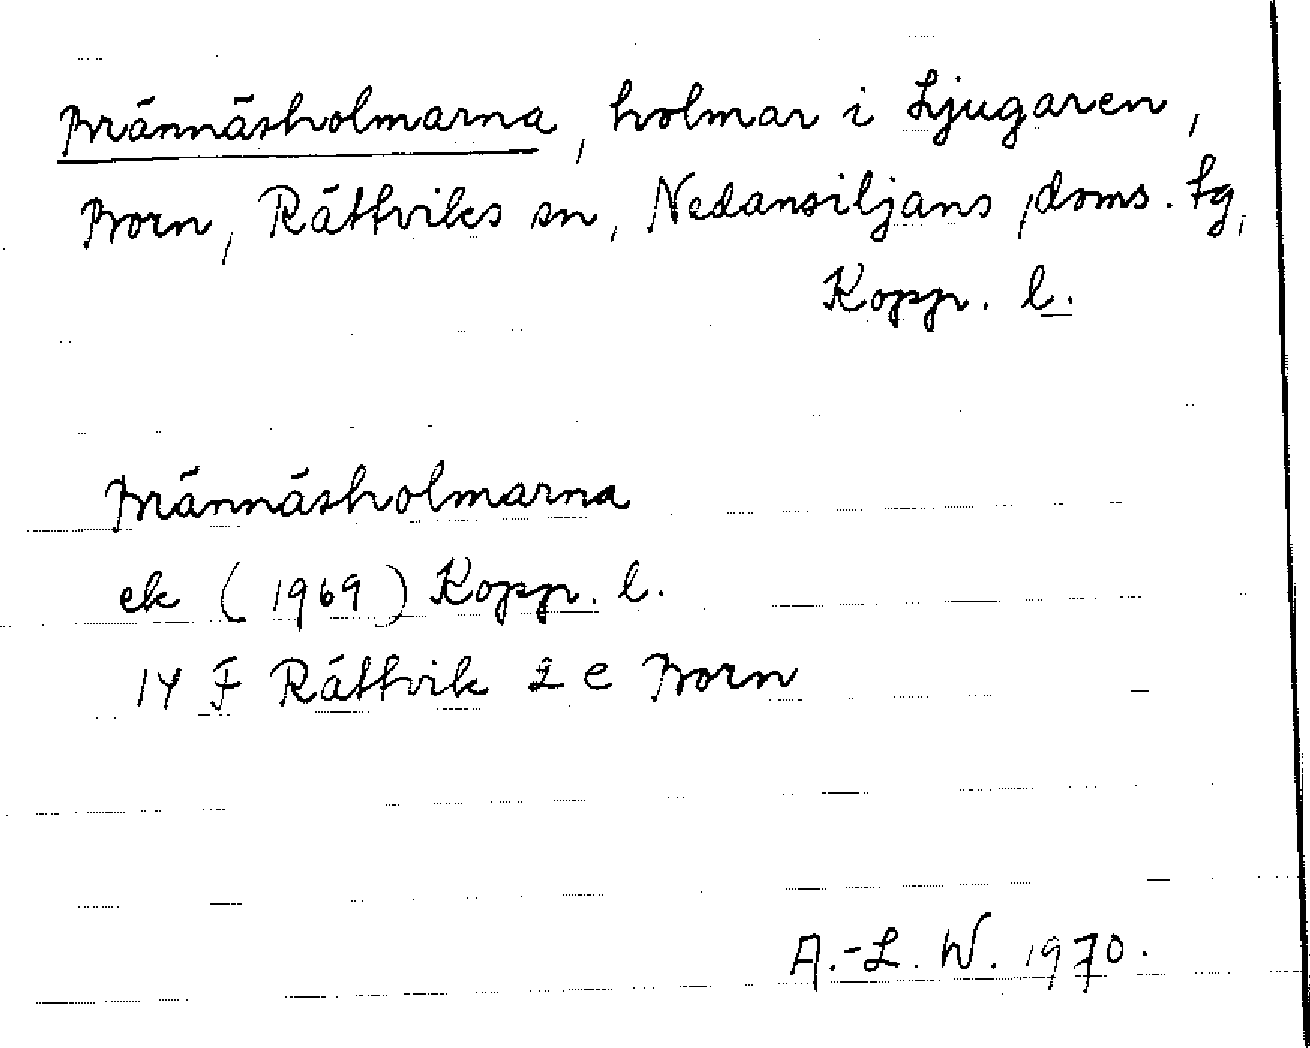 Brännäsholmarna, holmar i Ljugaren,
Born, Rättviks sn, Nedansiljans doms. tg,
Kopp. l.
Brännäsholmarna
ek (1969) Kopp. l.
14 F Rättvik 2 e Born
A.-L. W. 1970.